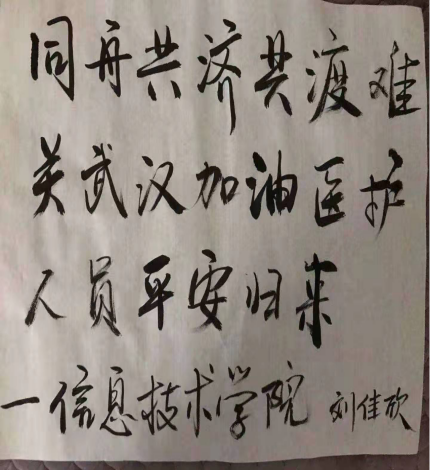 同舟共济共渡难
关武汉加油医护
人员平安归来
一信息技术学院 刘佳欣